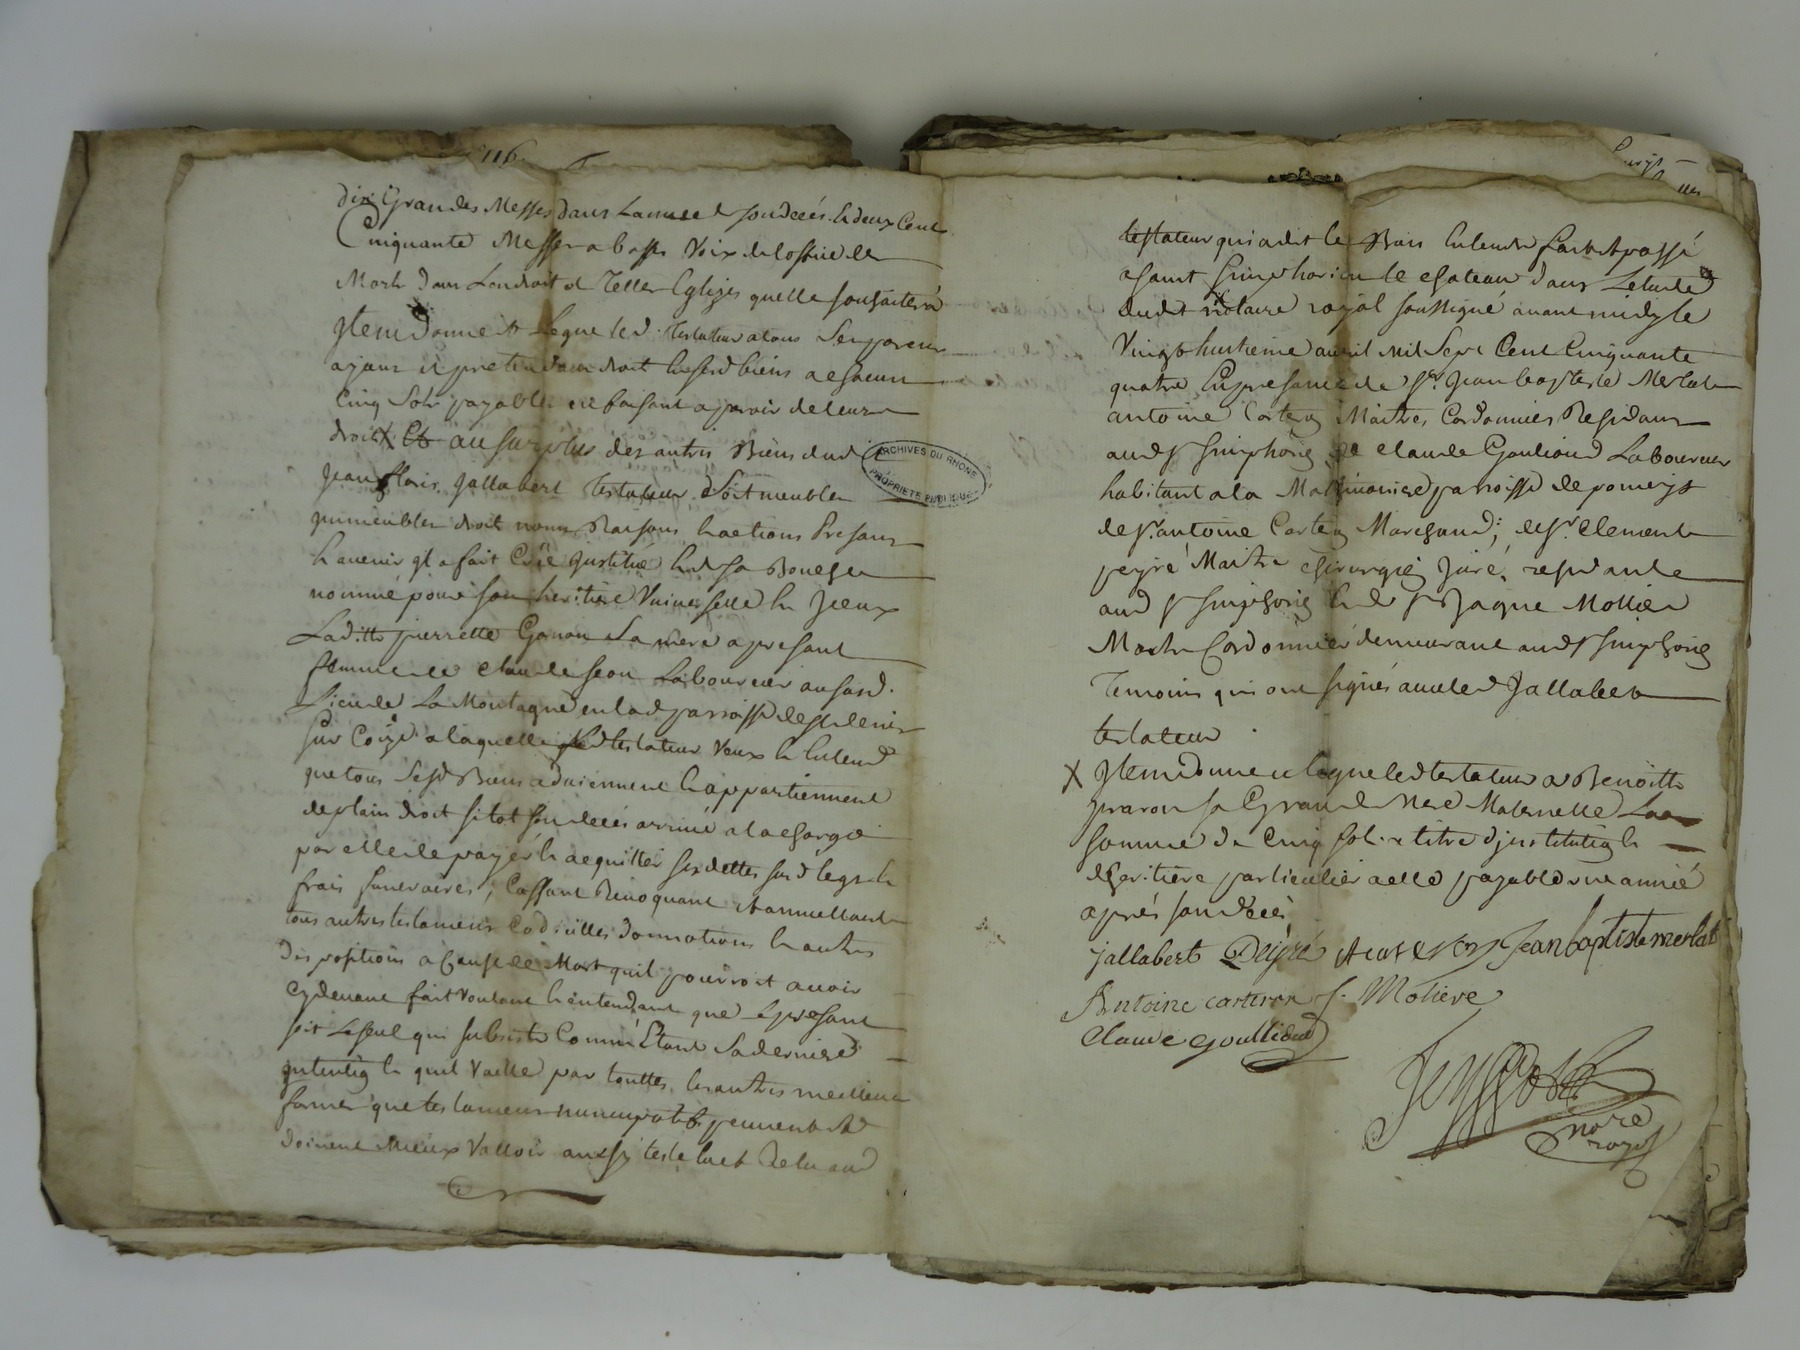 116
dix Grandes Messes dans Lannee de son deces. Et deux Cent
Cinquante Messes a basse Voix de loffice des
Morts dans Lendroit et Telles Eglizes quelle souhaitera
Item donne et Legue led. testateur a tous Ses parens
ayant et pretendant droit En sesd biens a chacun
Cinq Sols payables en faisant aparoir de leurs
droits X Et au surplus des autres Biens dud
Jean Jallabert Testateur Soit meubles
immeubles droit noms Raisons Et actions Presans
Et avenir Il a fait Créé Institué Et de Sa Bouche
nommé pour son heritiere Universelle Et Jceux
Laditte pierrette Garron Sa mere a presant
femme de Claude Jean Laboureur au susd.
Lieu de La Montagne en lad parroisse de St denis
sur Coize a laquelle led testateur Veux Et Entend
que tous Sesd Biens adviennent Et appartiennent
de plain droit sitot son deces arrivé a la charge
par elle de payer Et acquitter ses dettes susd legs Et
frais funeraires, Cassant Revoquant Et annullant
tous autres testamens Codicilles donnations Et autres
Dispositions a Cause de Mort quil pourroit avoir
Cydevant fait Voulant Et entendant que le presant
soit Le seul qui subsiste Comme Etant Sa derniere
intention Et quil Vaille par touttes les autres meilleures
formes que testamens nuncupatifs peuvent Et
doivent Mieux Valloir ainsy testé lu et Relu aud
ARCHIVES DU RHONE
PROPRIETE PUBLIQUE
testateur qui a dit le Bien Entendre fait et passé
a Saint Simphorien le chateau dans Letude
dudit notaire royal soussigné avant midy le
Vingt huitieme avril Mil Sept Cent Cinquante
quatre En presance de Sr. Jean baptiste Merlat
antoine Carteron Maitres Cordonniers Residans
aud St Simphorien de Claude Goulioud Laboureur
habitant a la parroisse de pomeys
de Sr. antoine Carteron Marchand; de Sr. Clement
peyré Maitre Chirurgien Juré, residant
aud St Simphorien Et de Sr Jaque Mollier
Maitre Cordonnier demeurant aud St Simphorien
Temoins qui ont signés avec led Jallabert
testateur
X Item donne et legue led testateur a Benoitte
sa Grande Mere Maternelle La
somme de Cinq sols a titre d'institution
d'heritiere particuliere a elle payable une année
après son deces
jallabert Peÿré A carteron Jean baptiste merlat
Antoine carteron J. Moliere
Claude goullioud
nore
royal